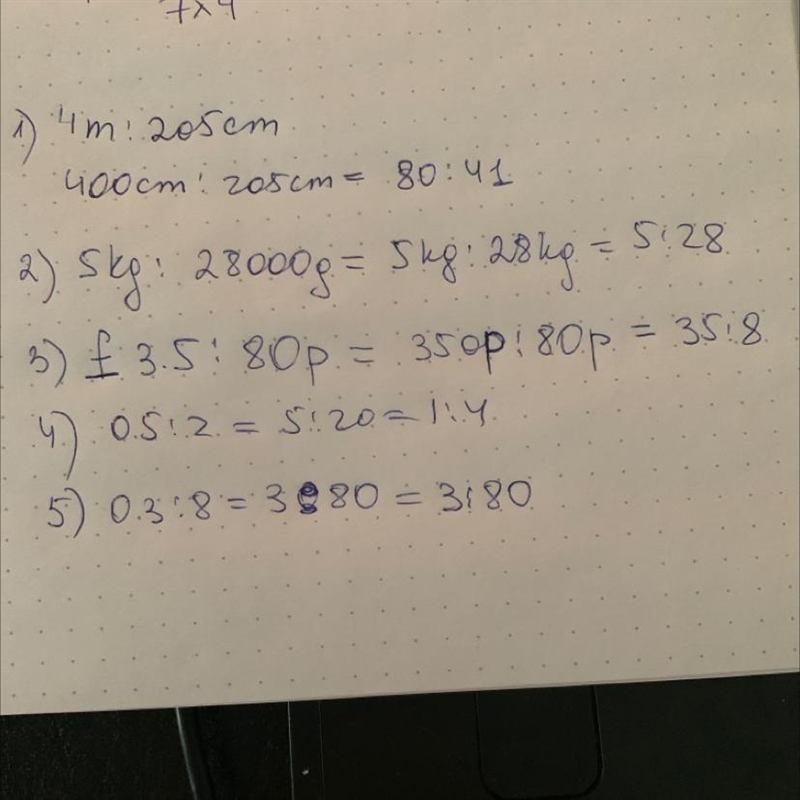 7x4
1) 4m : 205cm
400cm : 205cm = 80 : 41
2) 5kg : 28000g = 5kg : 28kg = 5 : 28
3) £3.5 : 80p = 350p : 80p = 35 : 8
4) 0.5 : 2 = 5 : 20 = 1 : 4
5) 0.3 : 8 = 3 : 80 = 3 : 80